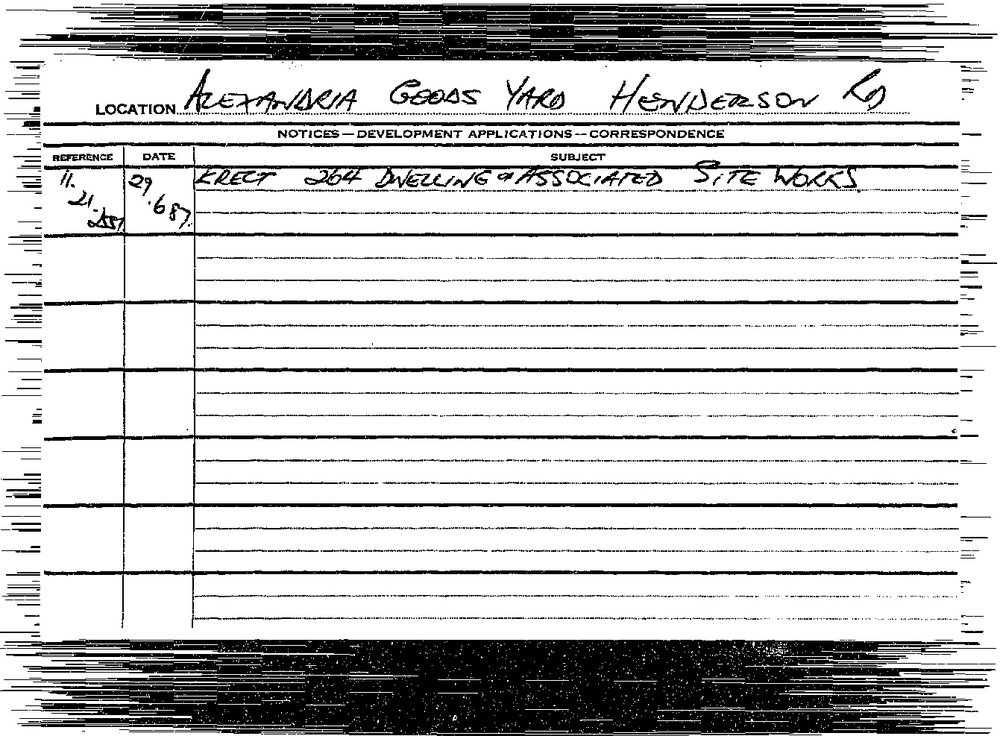 LOCATION ALEXANDRIA GOODS YARD HENDERSON RD
NOTICES—DEVELOPMENT APPLICATIONS—CORRESPONDENCE
REFERENCE DATE SUBJECT
11. 29 ERECT 264 DWELLING & ASSOCIATED SITE WORKS
21. .6 87.